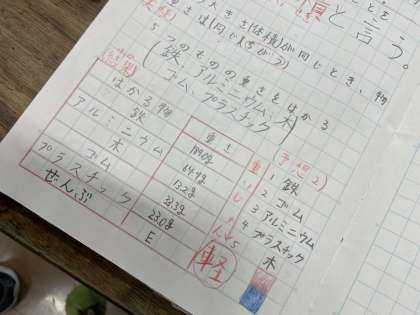 順と言う。
大きさ(体積)が同じとき、物
重さは(同じ・ちがう)
5つのものの重さをはかる
鉄、アルミニウム、木
ゴム、プラスチック
はかる物 重さ
鉄 189.0g
アルミニウム 64.4g
木 13.2g
ゴム 32.3g
プラスチック 23.0g
ぜんぶ E
軽
(予想2)
重
1 鉄
2 ゴム
3 アルミニウム
4 プラスチック
5 木